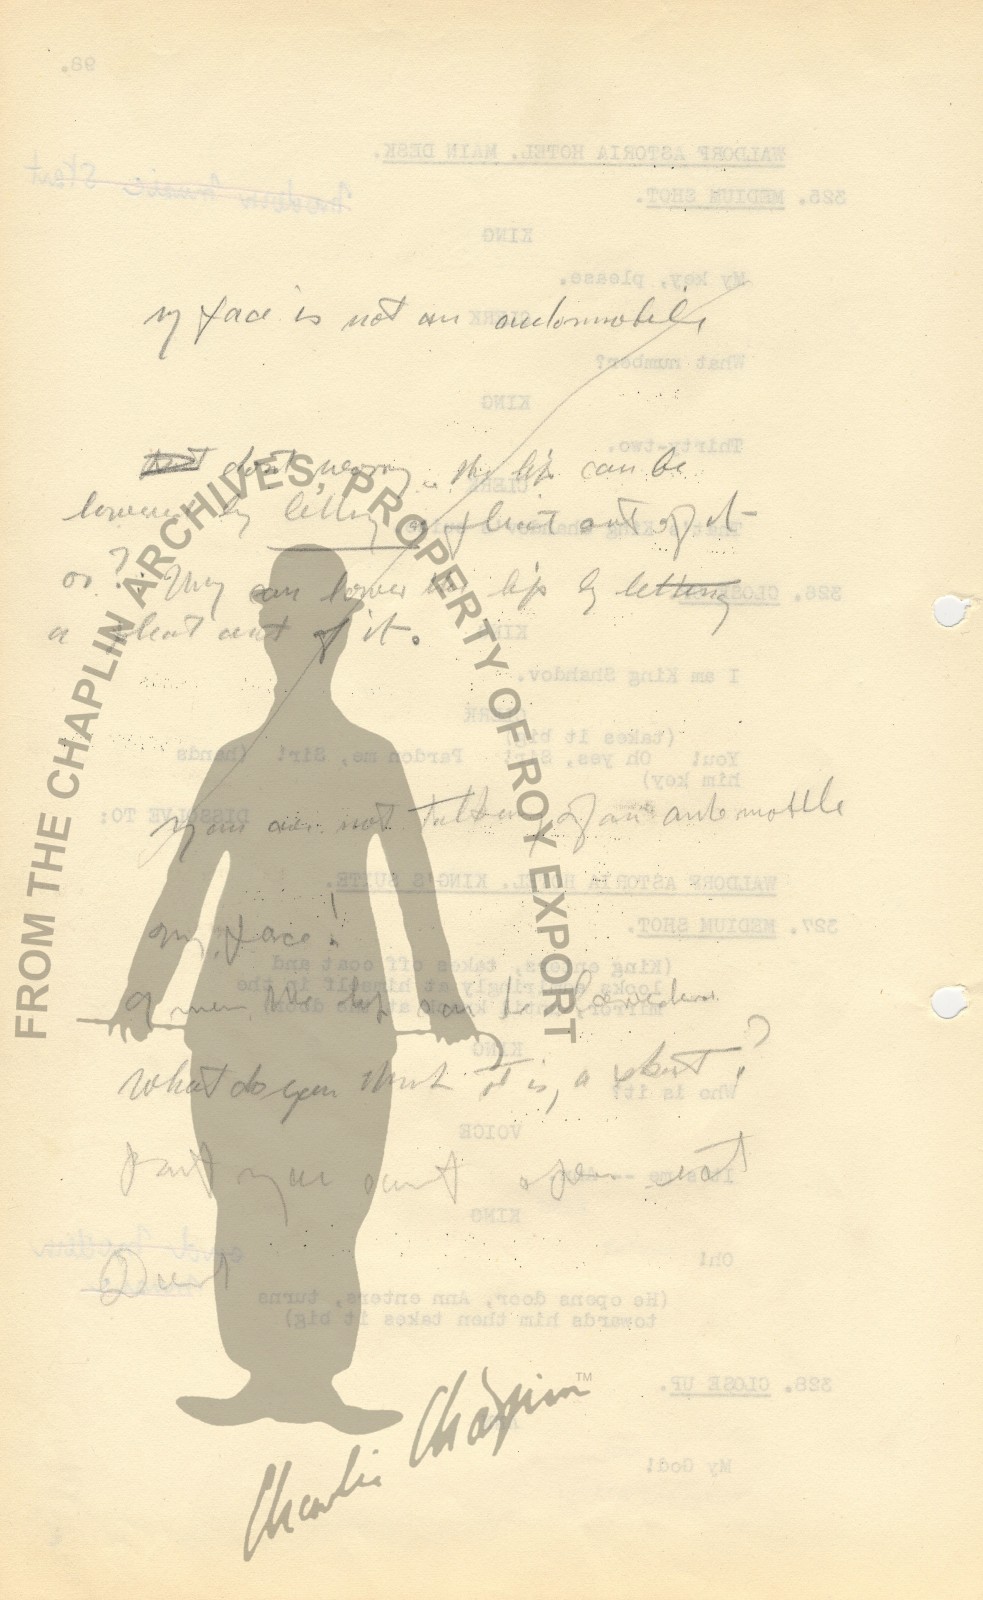 my face is not an automobile
don't worry. the lip can be
lowered by letting a pleat out of it
or? they can lower the lip by letting
a pleat out of it.
you are not talking of an automobile
my face!
the lip can be lowered
what do you think it is, a skirt?
FROM THE CHAPLIN ARCHIVES, PROPERTY OF ROY EXPORT
Charlie Chaplin™
98.
WALDORF ASTORIA HOTEL. MAIN DESK.
325. MEDIUM SHOT.
KING
My key, please.
CLERK
What number?
KING
Thirty-two.
CLERK
326. CLOSE
KING
I am King Shahdov.
CLERK
(takes it big)
You! Oh yes, Sir! Pardon me, Sir! (hands
him key)
DISSOLVE TO:
WALDORF ASTORIA HOTEL. KING'S SUITE.
327. MEDIUM SHOT.
(King enters, takes off coat and
looks admiringly at himself in the
mirror. door)
KING
Who is it?
VOICE
It's me
KING
Oh!
(He opens door, Ann enters, turns
towards him then takes it big)
328. CLOSE UP.
My God!